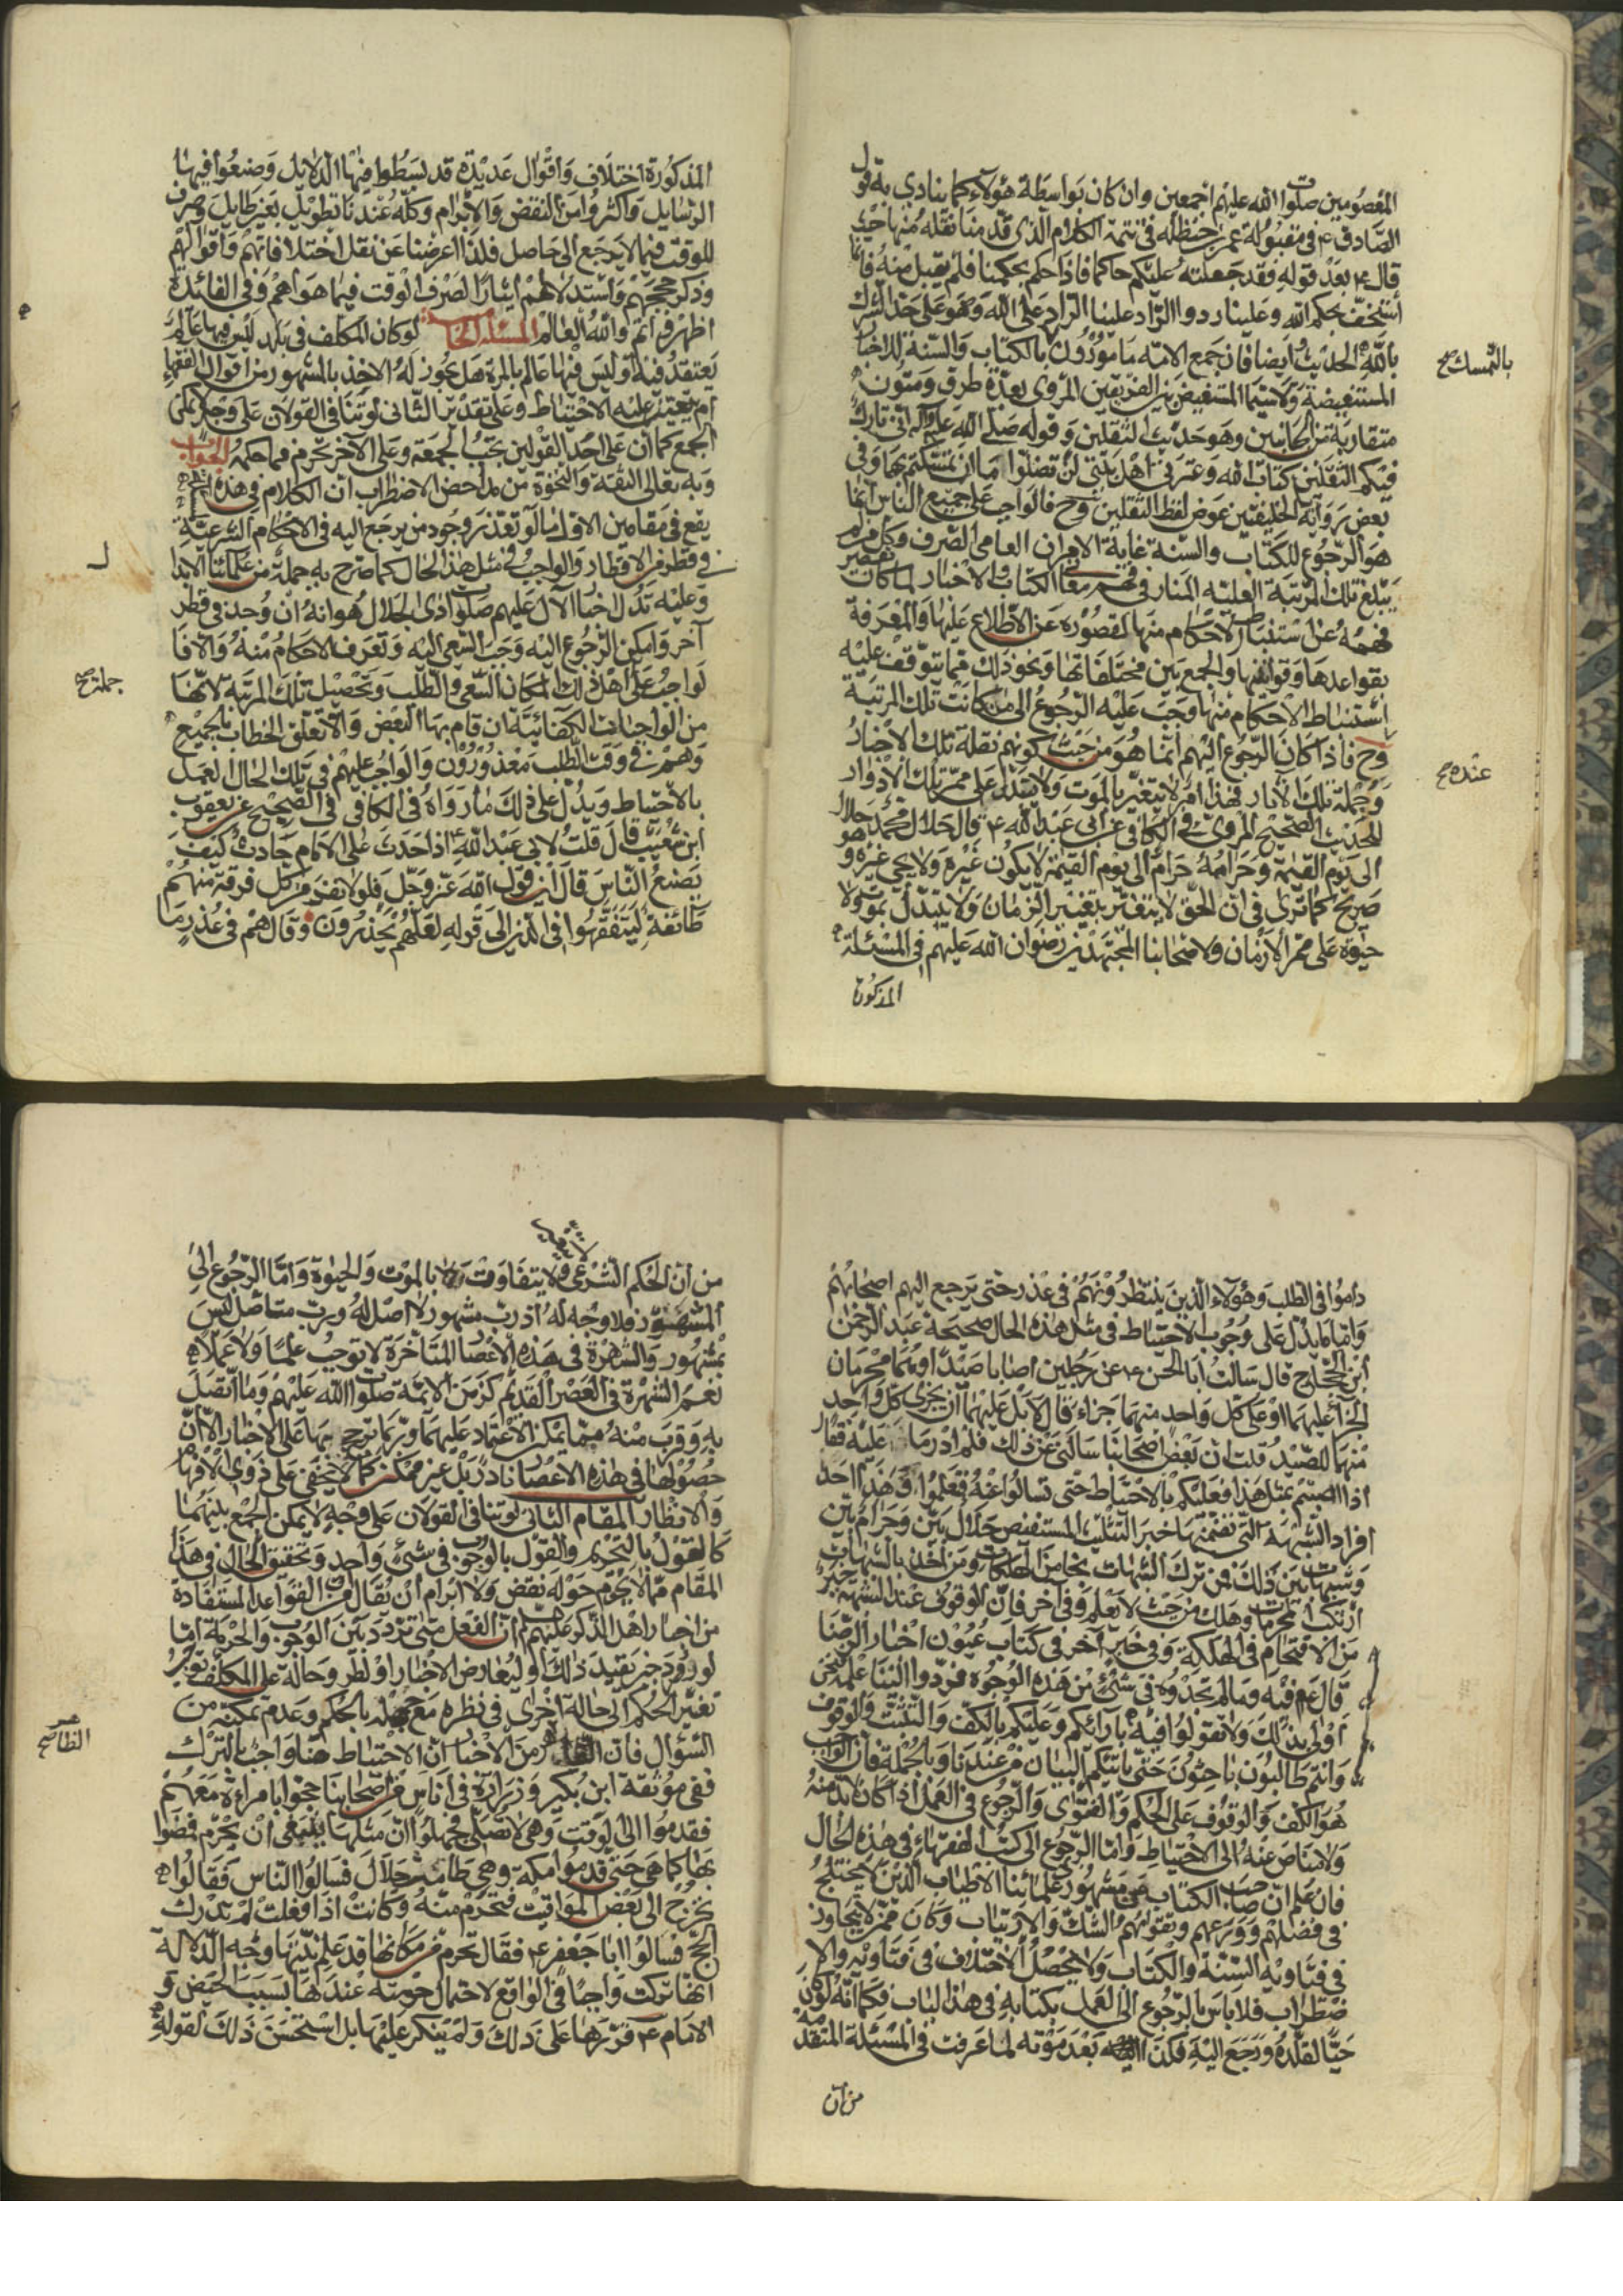 المعصومين صلوات الله عليهم اجمعين وان كان بواسطة هؤلاء كما ينادي به قول
الصادق ع في مقبولة عمر بن حنظلة في تتمة الكلام الذي قدمنا نقله منها حيث
قال ع بعد قوله فقد جعلته عليكم حاكما فاذا حكم بحكمنا فلم يقبل منه فانما
استخف بحكم الله وعلينا رد والراد علينا الراد على الله وهو على حد الشرك
بالله الحديث وايضا فان جميع الامة مامورون بالكتاب والسنة للاخبار
بالتمسك صح
المستفيضة ولاسيما المستفيض بين الفريقين المروي بعدة طرق ومتون
متقاربة من الجانبين وهو حديث الثقلين وقوله صلى الله عليه وآله اني تارك
فيكم الثقلين كتاب الله وعترتي اهل بيتي لن تضلوا ما ان تمسكتم بهما وفي
بعض رواية الخليفتين عوض لفظ الثقلين وح فالواجب على جميع الناس انما
هو الرجوع للكتاب والسنة غاية الامر ان العامي الصرف وكل من لم
يبلغ تلك المرتبة العلية المنار في فهم معاني الكتاب والاخبار لما كان يقصر
فهمه عن استنباط الاحكام منها لقصوره عن الاطلاع عليها والمعرفة
بقواعدها وقوانينها والجمع بين مختلفاتها ونحو ذلك مما يتوقف عليه
استنباط الاحكام منها وجب عليه الرجوع الى من كانت تلك المرتبة
عنده صح
وح فاذا كان الرجوع اليهم انما هو من حيث كونهم نقلة تلك الاخبار
وحملة تلك الآثار فهذا امر لا يتغير بالموت ولا يتبدل على ممر تلك الادوار
للحديث الصحيح المروي في الكافي عن ابي عبد الله ع قال حلال محمد حلال
الى يوم القيمة وحرامه حرام الى يوم القيمة لا يكون غيره ولا يجيء غيره وهو
صريح كما ترى في ان الحق لا يتغير بتغير الزمان ولا يتبدل بموت ولا
حيوة على ممر الازمان ولاصحابنا المجتهدين رضوان الله عليهم في المسئلة
المذكورة
المذكورة اختلاف واقوال عديدة قد بسطوا فيها الدلايل وصنعوا فيها
الرسايل واكثروا من النقض والابرام وكله عندنا تطويل بغير طايل وصرف
للوقت فيما لا يرجع الى حاصل فلذا اعرضنا عن نقل اختلافاتهم واقوالهم
وذكر حججهم واستدلالهم ايثارا لصرف الوقت فيما هو اهم وفي الفائدة
اظهر واتم والله العالم المسئلة لو كان المكلف في بلد ليس فيها عالم
يعتقد فيه او ليس فيها عالم بالمرة هل يجوز له الاخذ بالمشهور من اقوال الفقهاء
ام يتعين عليه الاحتياط وعلى تقدير الثاني لو تنافى القولان على وجه لا يمكن
الجمع كما ان على احد القولين تجب الجمعة وعلى الآخر تحرم فما حكمه الجواب
وبه تعالى الثقة والنجوة من مداحض الاضطراب ان الكلام في هذه
يقع في مقامين الاول ما لو تعذر وجود من يرجع اليه في الاحكام الشرعية
في قطر من الاقطار والواجب في مثل هذا الحال كما صرح به جملة من علمائنا الابدال
وعليه تدل اخبار الآل عليهم صلوات ذي الجلال هو انه ان وجد في قطر
آخر وامكن الرجوع اليه وجب السعي اليه وتعرف الاحكام منه والا فا
لواجب على اهل ذلك المكان السعي والطلب وتحصيل تلك المرتبة لانها
جملة صح
من الواجبات الكفائية ان قام بها البعض والا تعلق الخطاب بالجميع
وهم في وقت الطلب معذورون والواجب عليهم في تلك الحال العمل
بالاحتياط ويدل على ذلك ما رواه في الكافي في الصحيح عن يعقوب
ابن شعيب قال قلت لابي عبد الله ع اذا حدث على الامام حادث كيف
يصنع الناس قال اين قول الله عز وجل فلولا نفر من كل فرقة منهم
طائفة ليتفقهوا في الدين الى قوله لعلهم يحذرون وقال هم في عذر ما
داموا في الطلب وهؤلاء الذين ينتظرونهم في عذر حتى يرجع اليهم اصحابهم
واما ما يدل على وجوب الاحتياط في مثل هذه الحال صحيحة عبد الرحمن
ابن الحجاج قال سالت ابا الحسن ع عن رجلين اصابا صيدا وهما محرمان
الجزاء عليهما او على كل واحد منهما جزاء قال لا بل عليهما ان يجزى كل واحد
منهما للصيد قلت ان بعض اصحابنا سالني عن ذلك فلم ادر ما عليه فقال
اذا اصبتم بمثل هذا فعليكم بالاحتياط حتى تسالوا عنه فتعلموا وهذا احد
افراد الشبهة التي تضمنها خبر التثليث المستفيض حلال بين وحرام بين
وشبهات بين ذلك فمن ترك الشبهات نجا من الهلكات ومن اخذ بالشبهات
ارتكب المحرمات وهلك من حيث لا يعلم وفي آخر فان الوقوف عند الشبهة خير
من الاقتحام في الهلكة وفي خبر آخر في كتاب عيون اخبار الرضا
قال ع فيه وما لم تجدوه في شيء من هذه الوجوه فردوا الينا علمه فنحن
اولى بذلك ولا تقولوا فيه بآرائكم وعليكم بالكف والتثبت والوقوف
وانتم طالبون باحثون حتى ياتيكم البيان من عندنا وبالجملة فان الواجب
هو الكف والوقوف على الحكم والفتوى والرجوع في العمل اذا كان لابد منه
ولا مناص عنه الى الاحتياط واما الرجوع الى كتب الفقهاء في هذه الحال
فان علم ان صاحب الكتاب من مشهوري علمائنا الاطياب الذين لا يختلج
في فضلهم وورعهم وتقواهم الشك والارتياب وكان ممن لا يتجاوز
في فتاويه السنة والكتاب ولا يحصل الاختلاف في فتاويه والا
ضطراب فلا باس بالرجوع الى العمل بكتابه في هذا الباب فكما انه لو كان
حيا لقلده ورجع اليه فكذا بعد موته لما عرفت في المسئلة المتقدمة
من ان
من ان الحكم الشرعي لا يتفاوت بالموت والحيوة واما الرجوع الى
المشهور فلا وجه له اذ رب مشهور لا اصل له ورب متاصل ليس
بمشهور والشهرة في هذه الاعصار المتاخرة لا توجب علما ولا عملا
نعم الشهرة في العصر القديم كزمن الائمة صلوات الله عليهم وما اتصل
به وقرب منه مما يمكن الاعتماد عليها وربما ترجح بها على الاخبار الا ان
حصولها في هذه الاعصار نادر بل غير ممكن كما لا يخفى على ذوي الافهام
والانظار المقام الثاني لو تنافى القولان على وجه لا يمكن الجمع بينهما
كالقول بالتحريم والقول بالوجوب في شيء واحد وتحقيق الحال في هذا
المقام مما لا يحوم حوله نقض ولا ابرام ان يقال من القواعد المستفادة
من اخبار اهل الذكر عليهم السلام ان الفعل متى تردد بين الوجوب والحرمة اما
لورود خبر يفيد ذلك او لتعارض الاخبار او لطرو حالة على المكلف توجب
تغير الحكم الى حالة اخرى في نظره مع جهله بالحكم وعدم تمكنه من
السؤال فان الظاهر من الاخبار ان الاحتياط هنا واجب بالترك
الظاهر صح
ففي موثقة ابن بكير وزرارة في اناس من اصحابنا حجوا بامراءة معهم
فقدموا الى الوقت وهي لا تصلي فجهلوا ان مثلها ينبغي ان يحرم فمضوا
بها كما هي حتى قدموا مكة وهي طامث حلال فسالوا الناس فقالوا
تخرج الى بعض المواقيت فتحرم منه وكانت اذا فعلت لم تدرك
الحج فسالوا ابا جعفر ع فقال تحرم من مكانها قد علم نيتها وجه الدلالة
انها تركت واجبا في الواقع لاحتمال حرمته عندها بسبب الحيض و
الامام ع قررها على ذلك ولم ينكر عليها بل استحسن ذلك لقوله